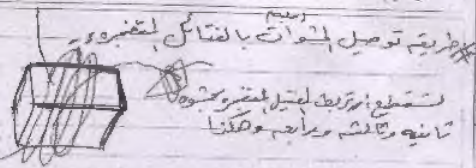 طريقة توصيل الحشوات بالفتائل المتفجرة
تستطيع أن تربط الفتيل المتفجر بحشوة
ثانية وثالثة ورابعة وهكذا